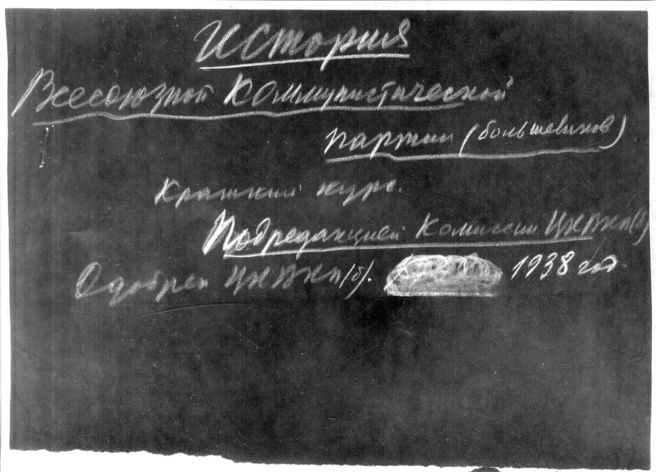 История
Всесоюзной Коммунистической
партии (большевиков)
Краткий курс.
Под редакцией Комиссии ЦК ВКП(б)
Одобрен ЦК ВКП(б). 1938 год